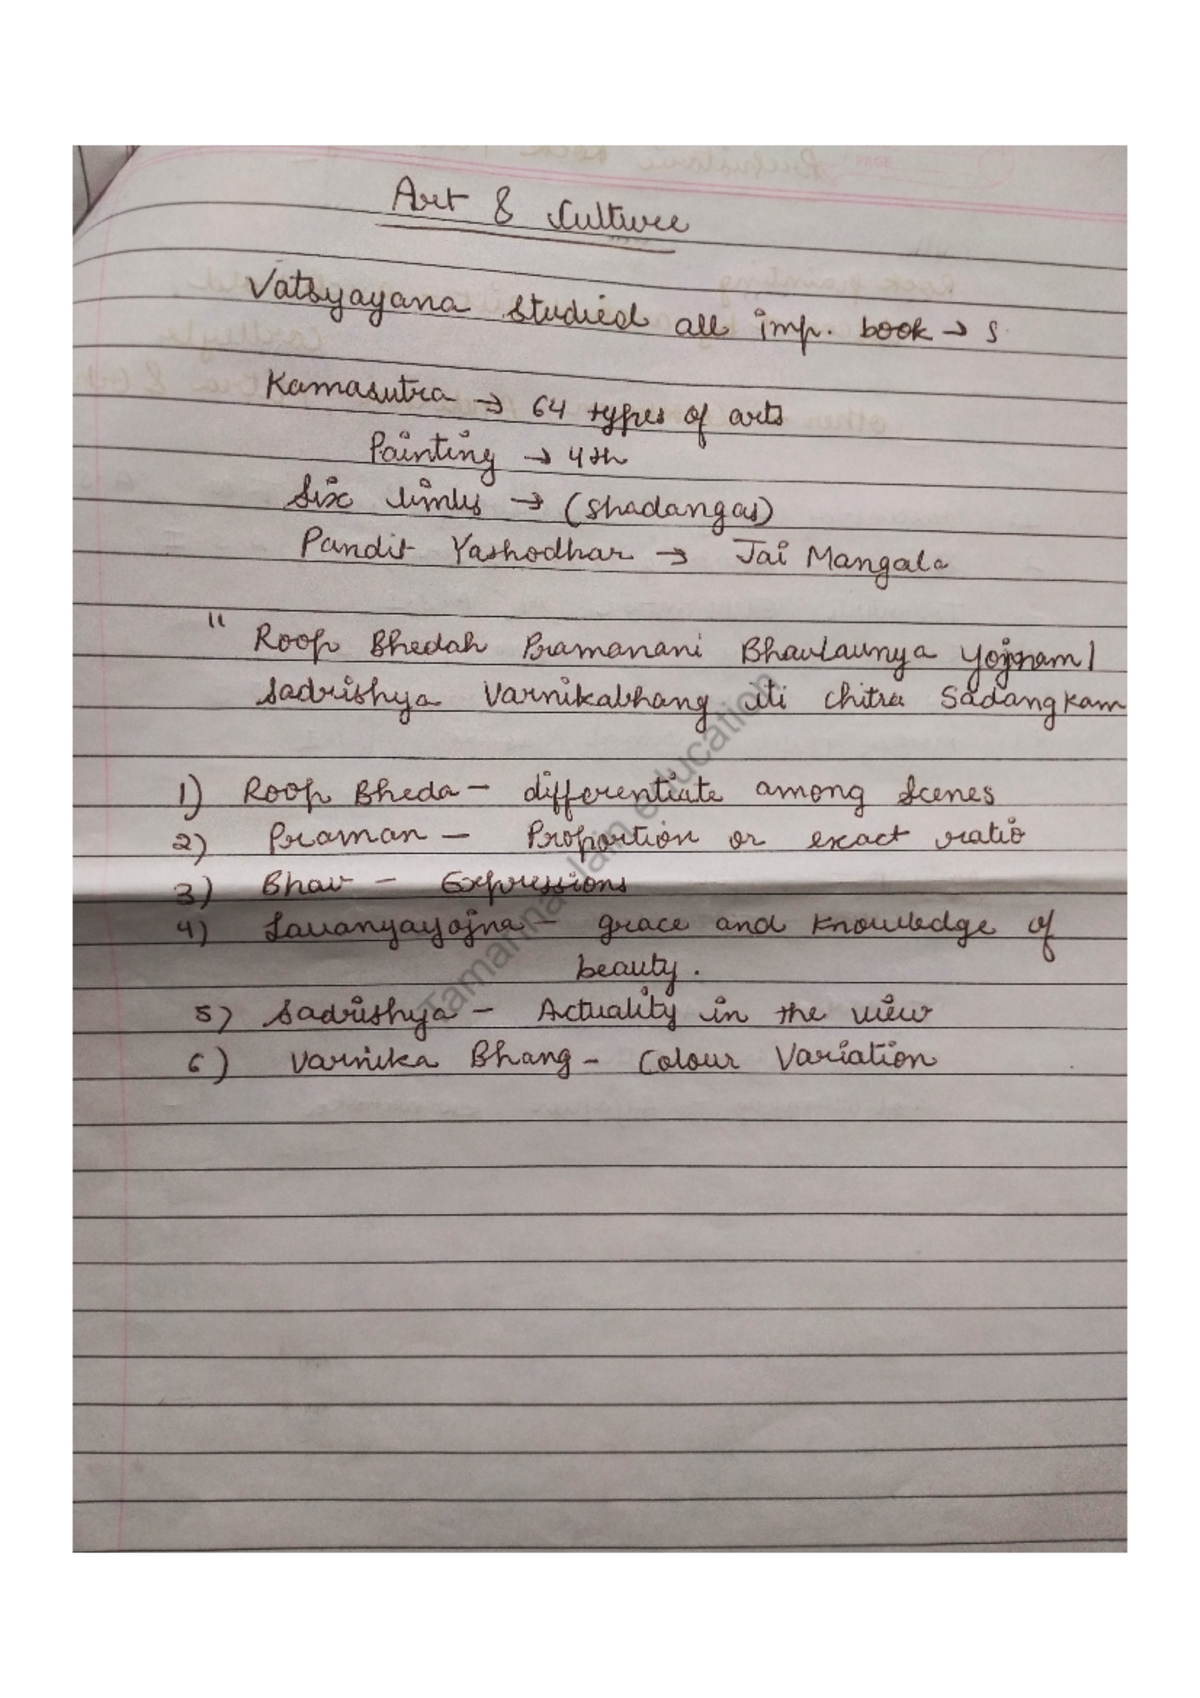 Art & Culture
Vatsyayana studied all imp. book → s
Kamasutra → 64 types of arts
Painting → 4th
Six limbs → (Shadangas)
Pandit Yashodhar → Jai Mangala
" Roop Bhedah Pramanani Bhavlaunya Yojnam|
Sadrishya Varnikabhang iti chitra Sadangkam
1) Roop Bheda - differentiate among scenes
2) Praman - Proportion or exact ratio
3) Bhav - Expressions
4) Lavanyayojna - grace and knowledge of
beauty.
5) Sadrishya - Actuality in the view
6) Varnika Bhang - Colour Variation
Tamanna Jain education